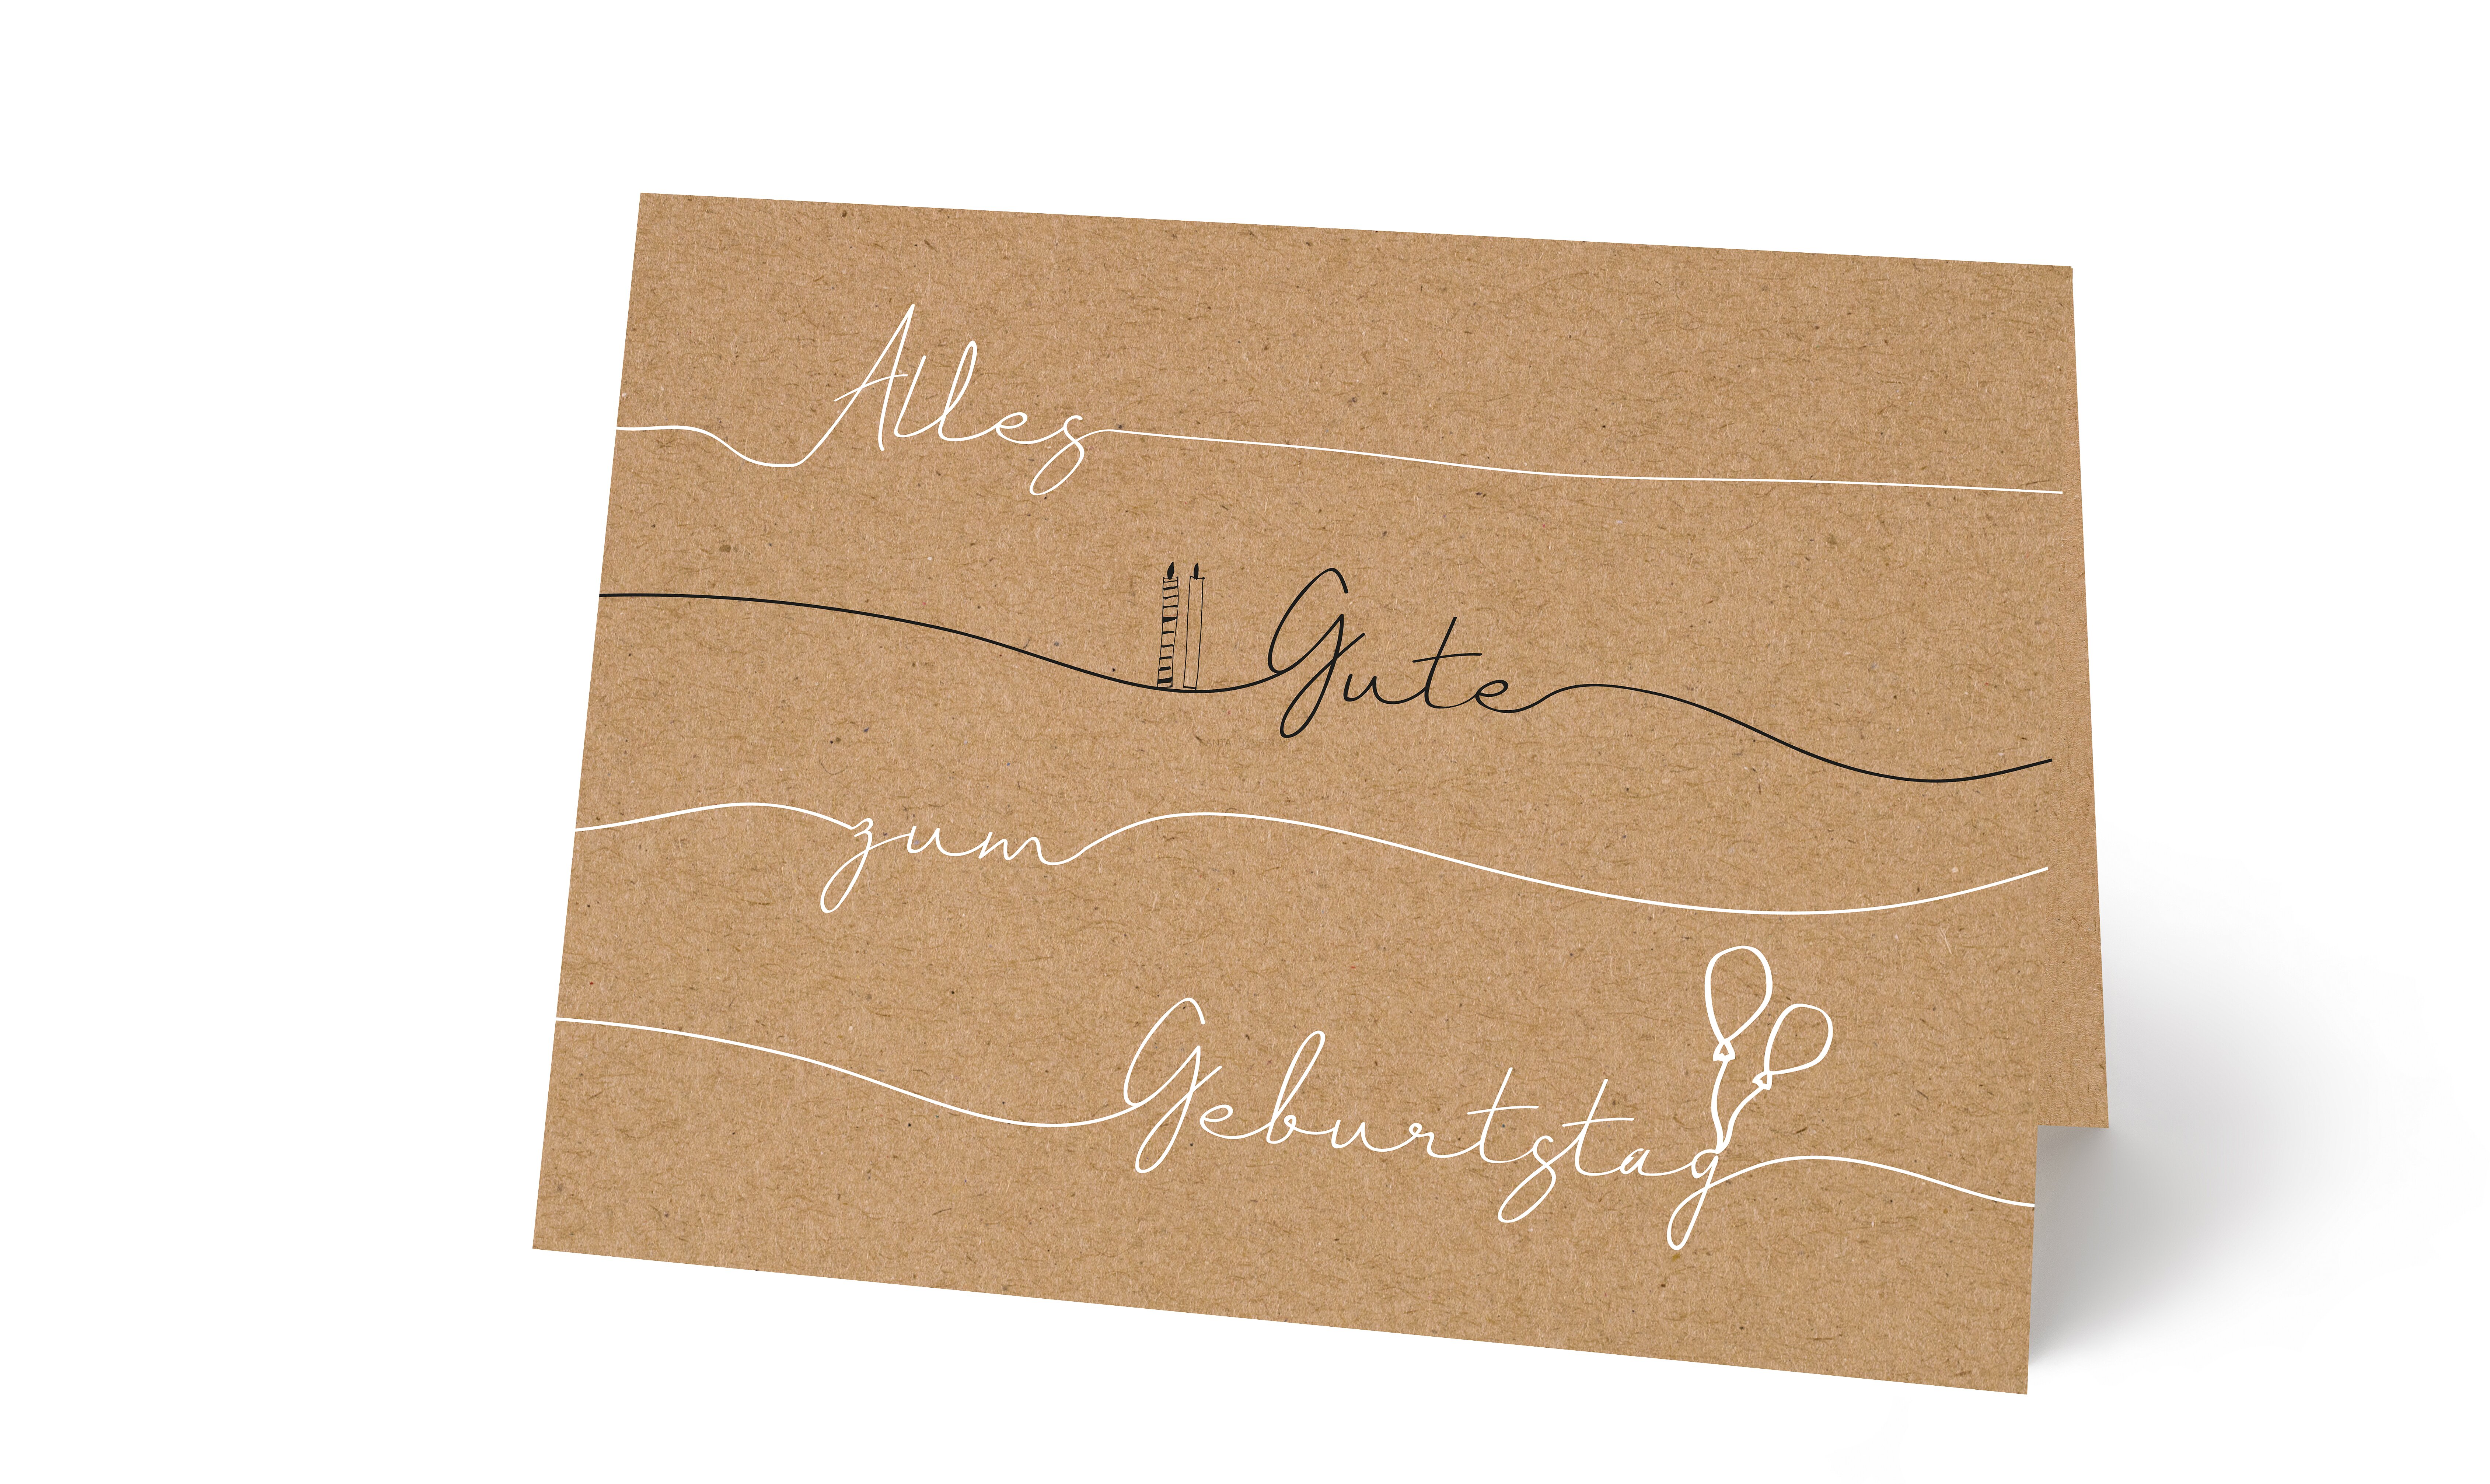 Alles
Gute
zum
Geburtstag